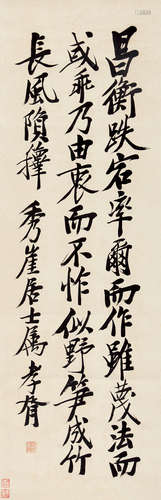 昌衡跌宕率爾而作雖茂法而
或乖乃由衷而不怍似野笋成竹
長風隕籜 秀崖居士屬 孝胥